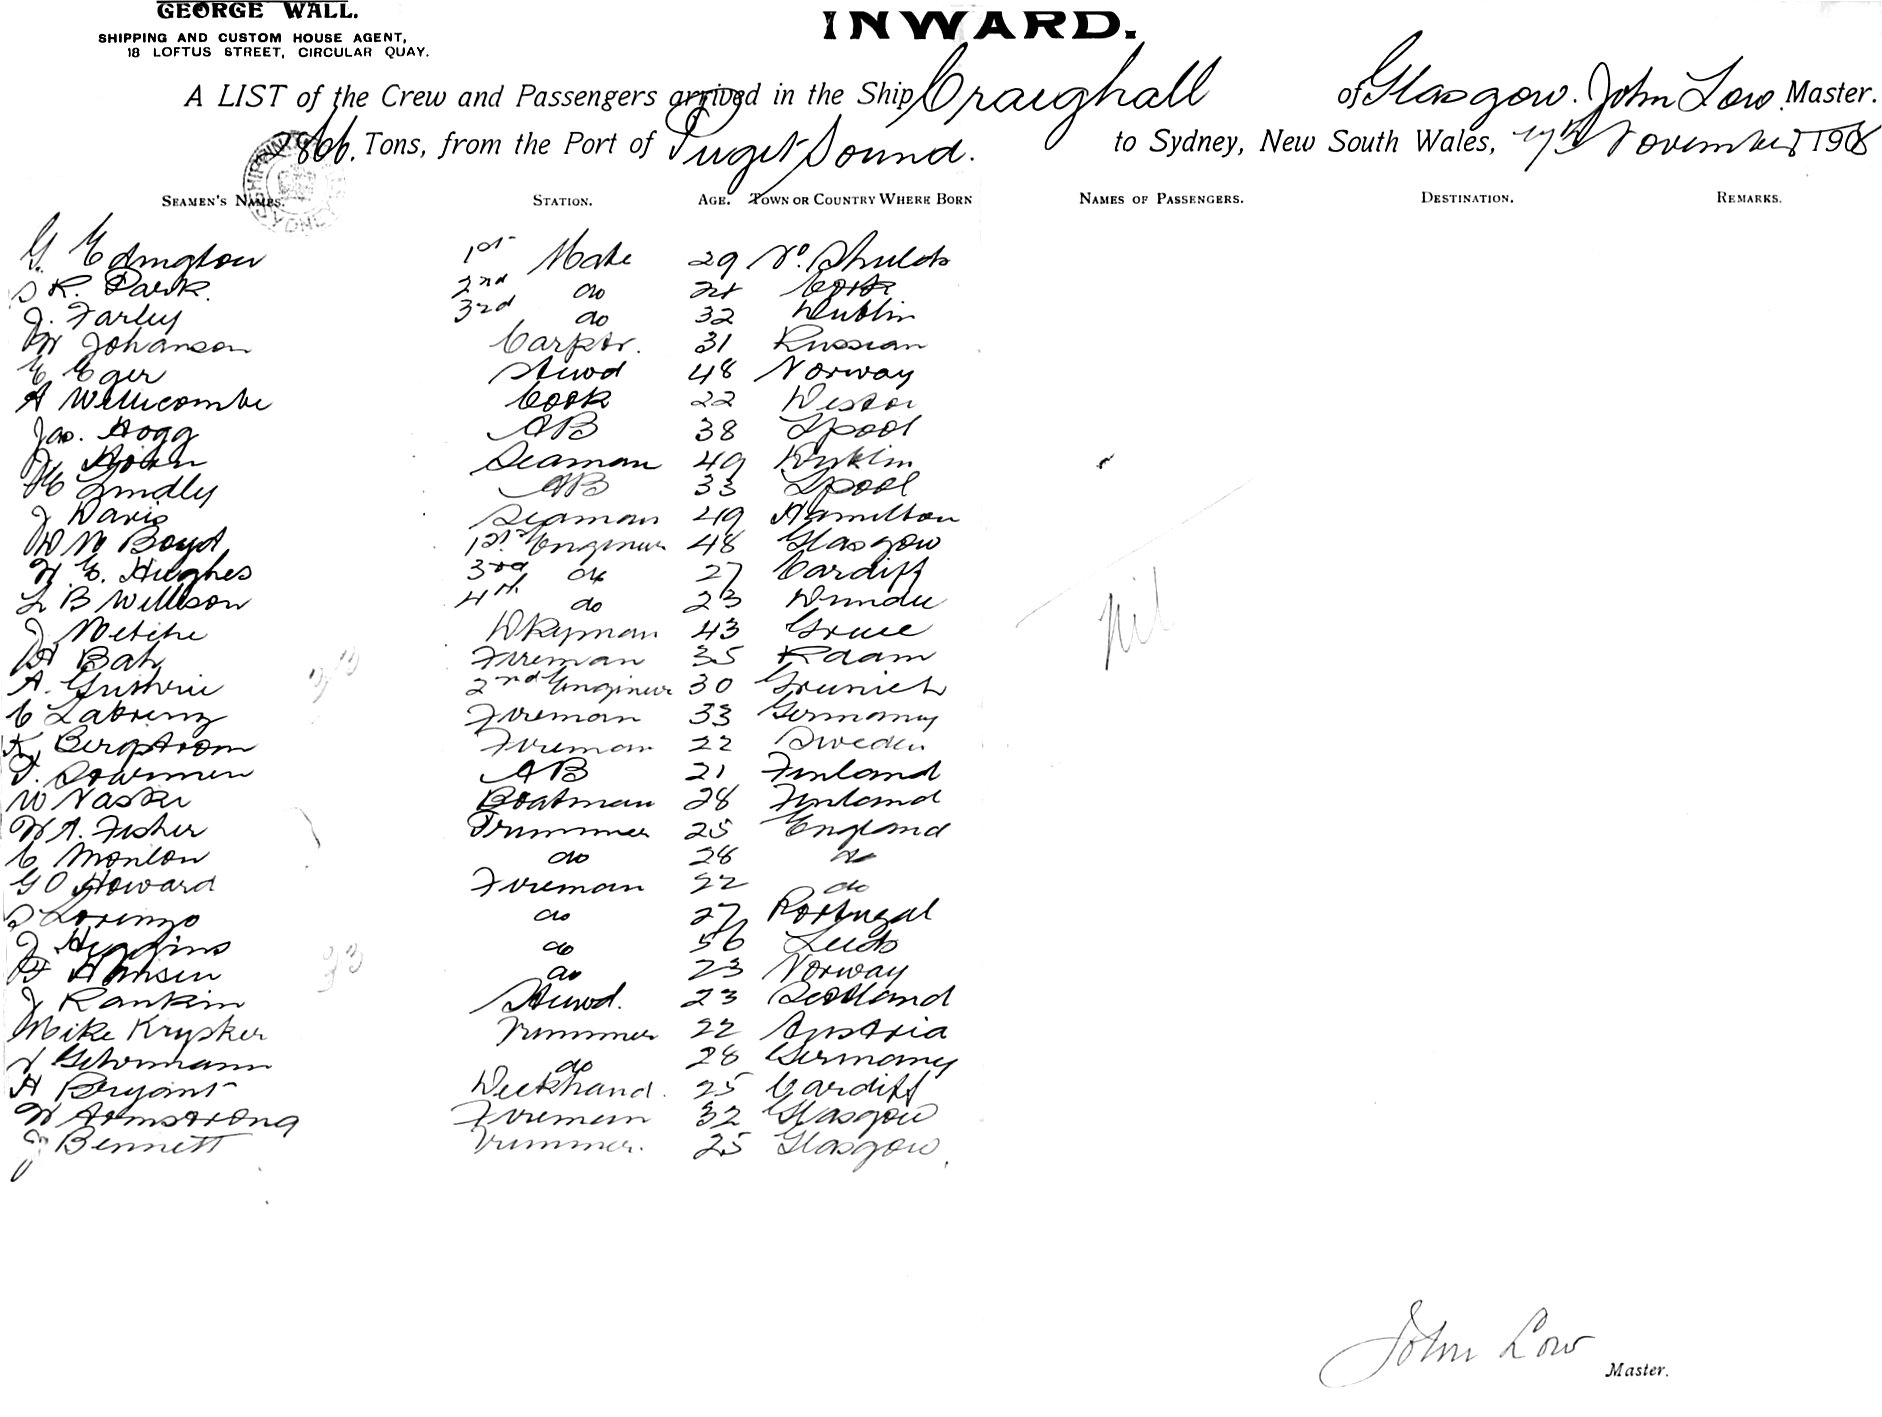 GEORGE WALL.
SHIPPING AND CUSTOM HOUSE AGENT,
18 LOFTUS STREET, CIRCULAR QUAY.
INWARD.
A LIST of the Crew and Passengers arrived in the Ship Craighall of Glasgow. John Low. Master.
2866. Tons, from the Port of Puget Sound. to Sydney, New South Wales, 17th November 1908
SEAMEN'S NAMES. STATION. AGE. TOWN OR COUNTRY WHERE BORN NAMES OF PASSENGERS. DESTINATION. REMARKS.
G. Edington 1st Mate 29 No. Shields
R. Park. 2nd do Cork
J. Farley 3rd do 32 Dublin
Johanson Carptr. 31 Russian
E Eger Stewd 48 Norway
A Wellicombe Cook 22
Jas. Hogg AB 38 Lpool
Seaman 49 Dublin
Lindly AB 33 Lpool
J Davis Seaman 49 Hamilton
W M Boyd 1st Engineer 48 Glasgow
W. E. Hughes 3rd do 27 Cardiff
L B Willson 4th do 23 Dundee
J Dkyman 43 Greece
Bah Fireman 35 Rdam
A. Guthrie 2nd Engineer 30 Greenich
C Labrenz Fireman 33 Germany
K Bergstrom Fireman 22 Sweden
AB 21 Finland
W Boatman 28 Finland
W A. Fisher Trimmer 25 England
C Monlon do 28 do
G O Howard Fireman 22 do
S Lorenzo do 27 Portugal
J Higgins do 56 Leeds
Hansen do 23 Norway
J Rankin Stewd. 23 Scotland
Mike Krysker Trimmer 22 Austria
Gehrmann do 28 Germany
A Bryant Deckhand. 25 Cardiff
W Armstrong Fireman 32 Glasgow
J Bennett Trimmer. 25 Glasgow
Nil
John Low
Master.